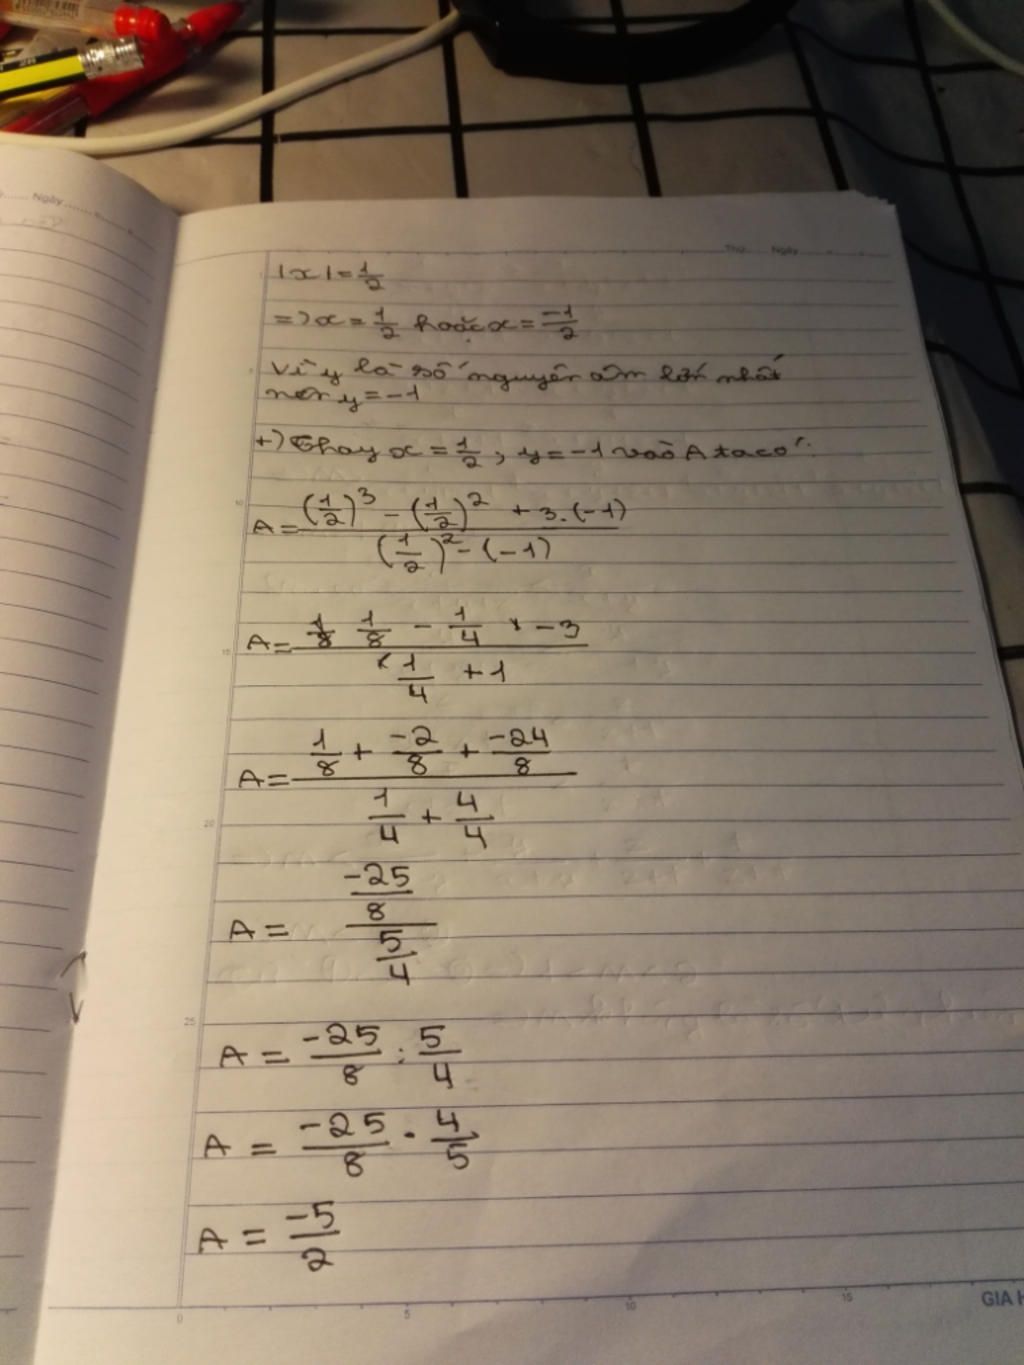 Ngày
Thứ Ngày
|x| = 1/2
=> x = 1/2 hoặc x = -1/2
Vì y là số nguyên âm lớn nhất
nên y = -1
+) Thay x = 1/2, y = -1 vào A ta có:
A = ((1/2)^3 - (1/2)^2 + 3.(-1)) / ((1/2)^2 - (-1))
A = (1/8 - 1/4 - 3) / (1/4 + 1)
A = (1/8 + -2/8 + -24/8) / (1/4 + 4/4)
A = (-25/8) / (5/4)
A = -25/8 : 5/4
A = -25/8 . 4/5
A = -5/2
10
15
20
25
0 5 10 15
GIA H